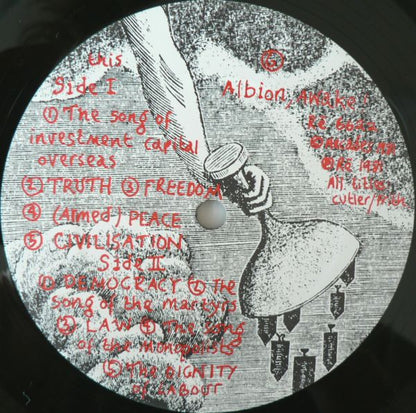 this
Side I
① The song of
investment capital
overseas
② TRUTH ③ FREEDOM
④ (Armed) PEACE
⑤ CIVILISATION
Side II
① DEMOCRACY ② The
song of the martyrs
③ LAW ④ The song
of the monopolists
⑤ The DIGNITY
of LABOUR
Albion, Awake!
Re
Re 1981
All titles
cutler/Frith